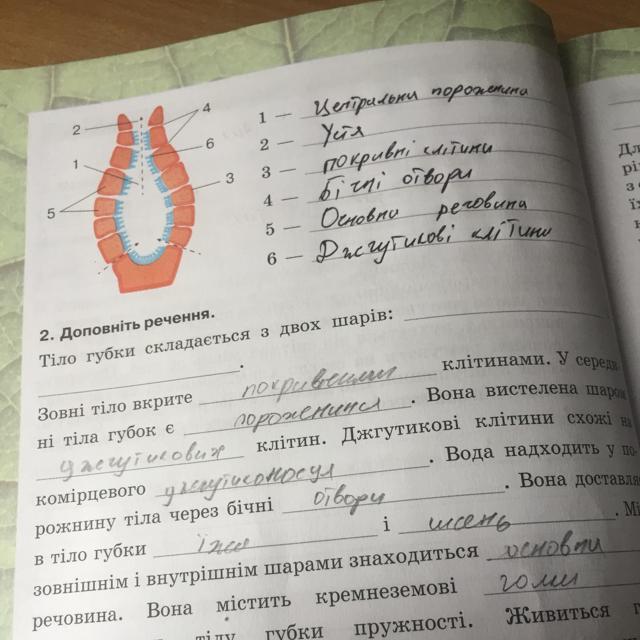 2
4
1
6
3
5
1 — Центральна порожнина
2 — Устя
3 — покривні клітини
4 — бічні отвори
5 — Основна речовина
6 — Джгутикові клітини
2. Доповніть речення.
Тіло губки складається з двох шарів:
.
Зовні тіло вкрите покривними клітинами. У середи-
ні тіла губок є порожнина. Вона вистелена шаром
джгутикових клітин. Джгутикові клітини схожі на
комірцевого джгутиконосця. Вода надходить у по-
рожнину тіла через бічні отвори. Вона доставляє
в тіло губки їжа і кисень. Мі
зовнішнім і внутрішнім шарами знаходиться основна
речовина. Вона містить кремнеземові голки
тілу губки пружності. Живиться г
Дл
рі
з
їх